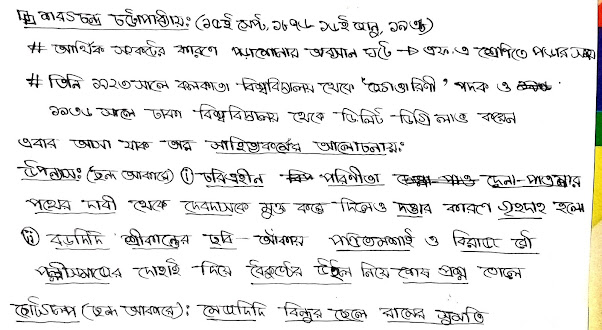 শরৎচন্দ্র চট্টোপাধ্যায়ঃ (১৫ই সেপ্ট, ১৮৭৬ ১৬ই জানু, ১৯৩৮)
# আর্থিক সংকটের কারণে পড়াশোনার অবসান ঘটে → এফ.এ শ্রেণিতে পড়ার সময়
# তিনি ১৯২৩ সালে কলকাতা বিশ্ববিদ্যালয় থেকে "জগত্তারিণী" পদক ও
১৯৩৬ সালে ঢাকা বিশ্ববিদ্যালয় থেকে ডি.লিট ডিগ্রি লাভ করেন
এবার আসা যাক তার সাহিত্যকর্মের আলোচনায়ঃ
উপন্যাসঃ (ছন্দ আকারে) ⓘ চরিত্রহীন পরিণীতা দেনা-পাওনার
পথের দাবী থেকে দেবদাসকে মুক্ত করে দিলেও দত্তার কারণে গৃহদাহ হলো
ⓘⓘ বড়দিদি শ্রীকান্তের ছবি আঁকায় পণ্ডিতমশাই ও বিরাজ বৌ
পল্লীসমাজের দোহাই দিয়ে বৈকুণ্ঠের উইল নিয়ে শেষ প্রশ্ন তোলে
ছোটগল্প (ছন্দ আকারে): মেজদিদি বিন্দুর ছেলে রামের সুমতি